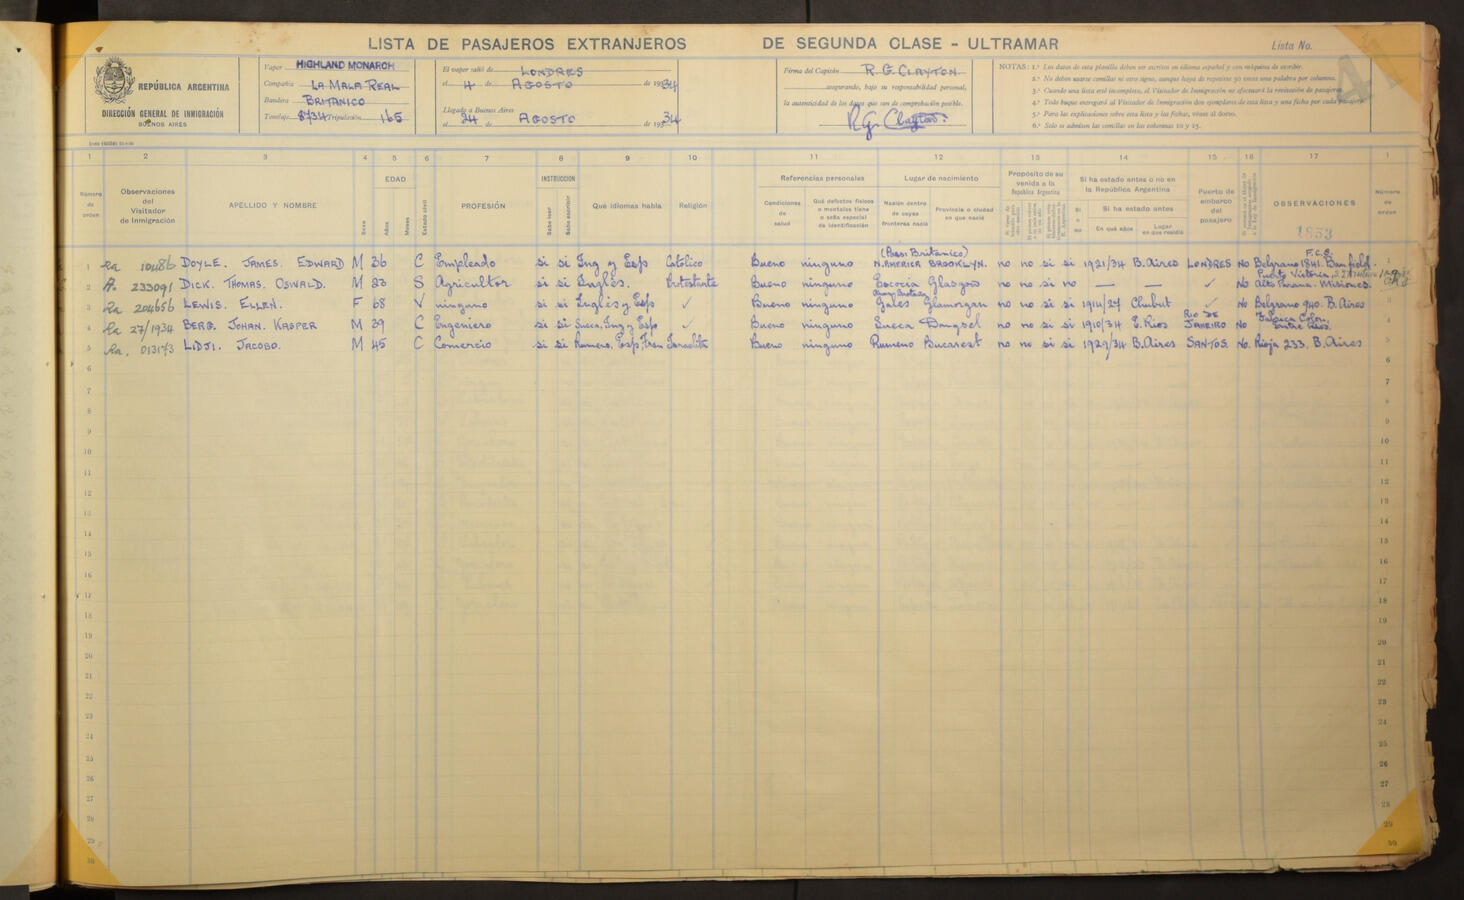 LISTA DE PASAJEROS EXTRANJEROS DE SEGUNDA CLASE - ULTRAMAR
Lista No.
REPÚBLICA ARGENTINA
DIRECCIÓN GENERAL DE INMIGRACIÓN
BUENOS AIRES
Vapor HIGHLAND MONARCH
Compañía LA MALA REAL
Bandera BRITANICO
Tonelaje 8734 Tripulación 165
El vapor salió de LONDRES
el 4 de AGOSTO de 1934
Llegado a Buenos Aires
el 24 de AGOSTO de 1934
Firma del Capitán R. G. CLAYTON
asegurando, bajo su responsabilidad personal,
la autenticidad de los datos que son de comprobación posible.
R.G. Clayton.
NOTAS: 1.º Los datos de esta planilla deben ser escritos en idioma español y con máquina de escribir.
2.º No deben usarse comillas ni otro signo, aunque haya de repetirse 30 veces una palabra por columna.
3.º Cuando una lista esté incompleta, el Visitador de Inmigración no efectuará la revisación de pasajeros.
4.º Todo buque entregará al Visitador de Inmigración dos ejemplares de esta lista y una ficha por cada pasajero.
5.º Para las explicaciones sobre esta lista y las fichas, véase al dorso.
6.º Solo se admiten las comillas en las columnas 10 y 15.
1 2 3 4 5 6 7 8 9 10 11 12 13 14 15 16 17 1
Número de orden
Observaciones del Visitador de Inmigración
APELLIDO Y NOMBRE
Sexo
EDAD
Años
Meses
Estado civil
PROFESIÓN
INSTRUCCION
Sabe leer
Sabe escribir
Qué idiomas habla
Religión
Referencias personales
Condiciones de salud
Qué defectos físicos o mentales tiene o seña especial de identificación
Lugar de nacimiento
Nación dentro de cuyas fronteras nació
Provincia o ciudad en que nació
Propósito de su venida a la República Argentina
Si ha estado antes o no en la República Argentina
Si o no
Si ha estado antes
En qué años
Lugar en que residió
Puerto de embarco del pasajero
OBSERVACIONES
1953
Número de orden
1 10486 DOYLE. JAMES. EDWARD M 36 C Empleado si si Ing y Esp Católico Bueno ninguno (Brit.) N. AMERICA BROOKLYN. no no si si 1921/34 B. Aires LONDRES No Belgrano 1841. Banfield. F.C.S. 1
2 233091 DICK. THOMAS. OSWALD. M 23 S Agricultor si si Inglés. Protestante Bueno ninguno Escocia Glasgow no no si no — — ✓ No Puerto Victoria, Alto Parana. Misiones. 2
3 204656 LEWIS. ELLEN. F 68 V ninguno si si Inglés y Esp ✓ Bueno ninguno Gales Glamorgan no no si si 1914/27 Chubut ✓ No Belgrano 940. B. Aires 3
4 27/1934 BERG. JOHAN. KASPER M 39 C Ingeniero si si Sueca, Ing y Esp ✓ Bueno ninguno Sueca no no si si 1910/34 E. Rios RIO DE JANEIRO No Colon. Entre Rios. 4
5 013173 LIDJI. JACOBO. M 45 C Comercio si si Rumeno, Esp, Fran Israelita Bueno ninguno Rumeno Bucarest no no si si 1929/34 B. Aires SANTOS. No. Rioja 233. B. Aires 5
6 6
7 7
8 8
9 9
10 10
11 11
12 12
13 13
14 14
15 15
16 16
17 17
18 18
19 19
20 20
21 21
22 22
23 23
24 24
25 25
26 26
27 27
28 28
29 29
30 30